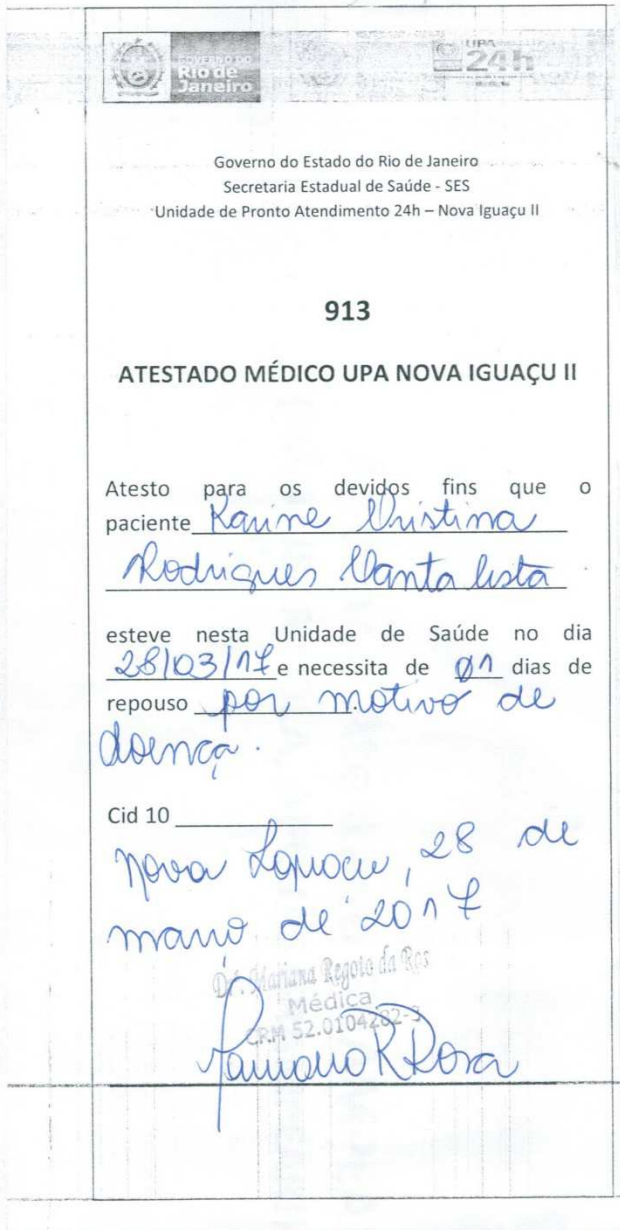 GOVERNO DO
Rio de
Janeiro
UPA
24h
Governo do Estado do Rio de Janeiro
Secretaria Estadual de Saúde - SES
Unidade de Pronto Atendimento 24h – Nova Iguaçu II
913
ATESTADO MÉDICO UPA NOVA IGUAÇU II
Atesto para os devidos fins que o
paciente Karine Cristina
Rodrigues
esteve nesta Unidade de Saúde no dia
28/03/17 e necessita de 01 dias de
repouso por motivo de
doença.
Cid 10
Nova Iguacu, 28 de
março de 2017
Mariana Regoto da
Médica
CRM 52.0104282-3